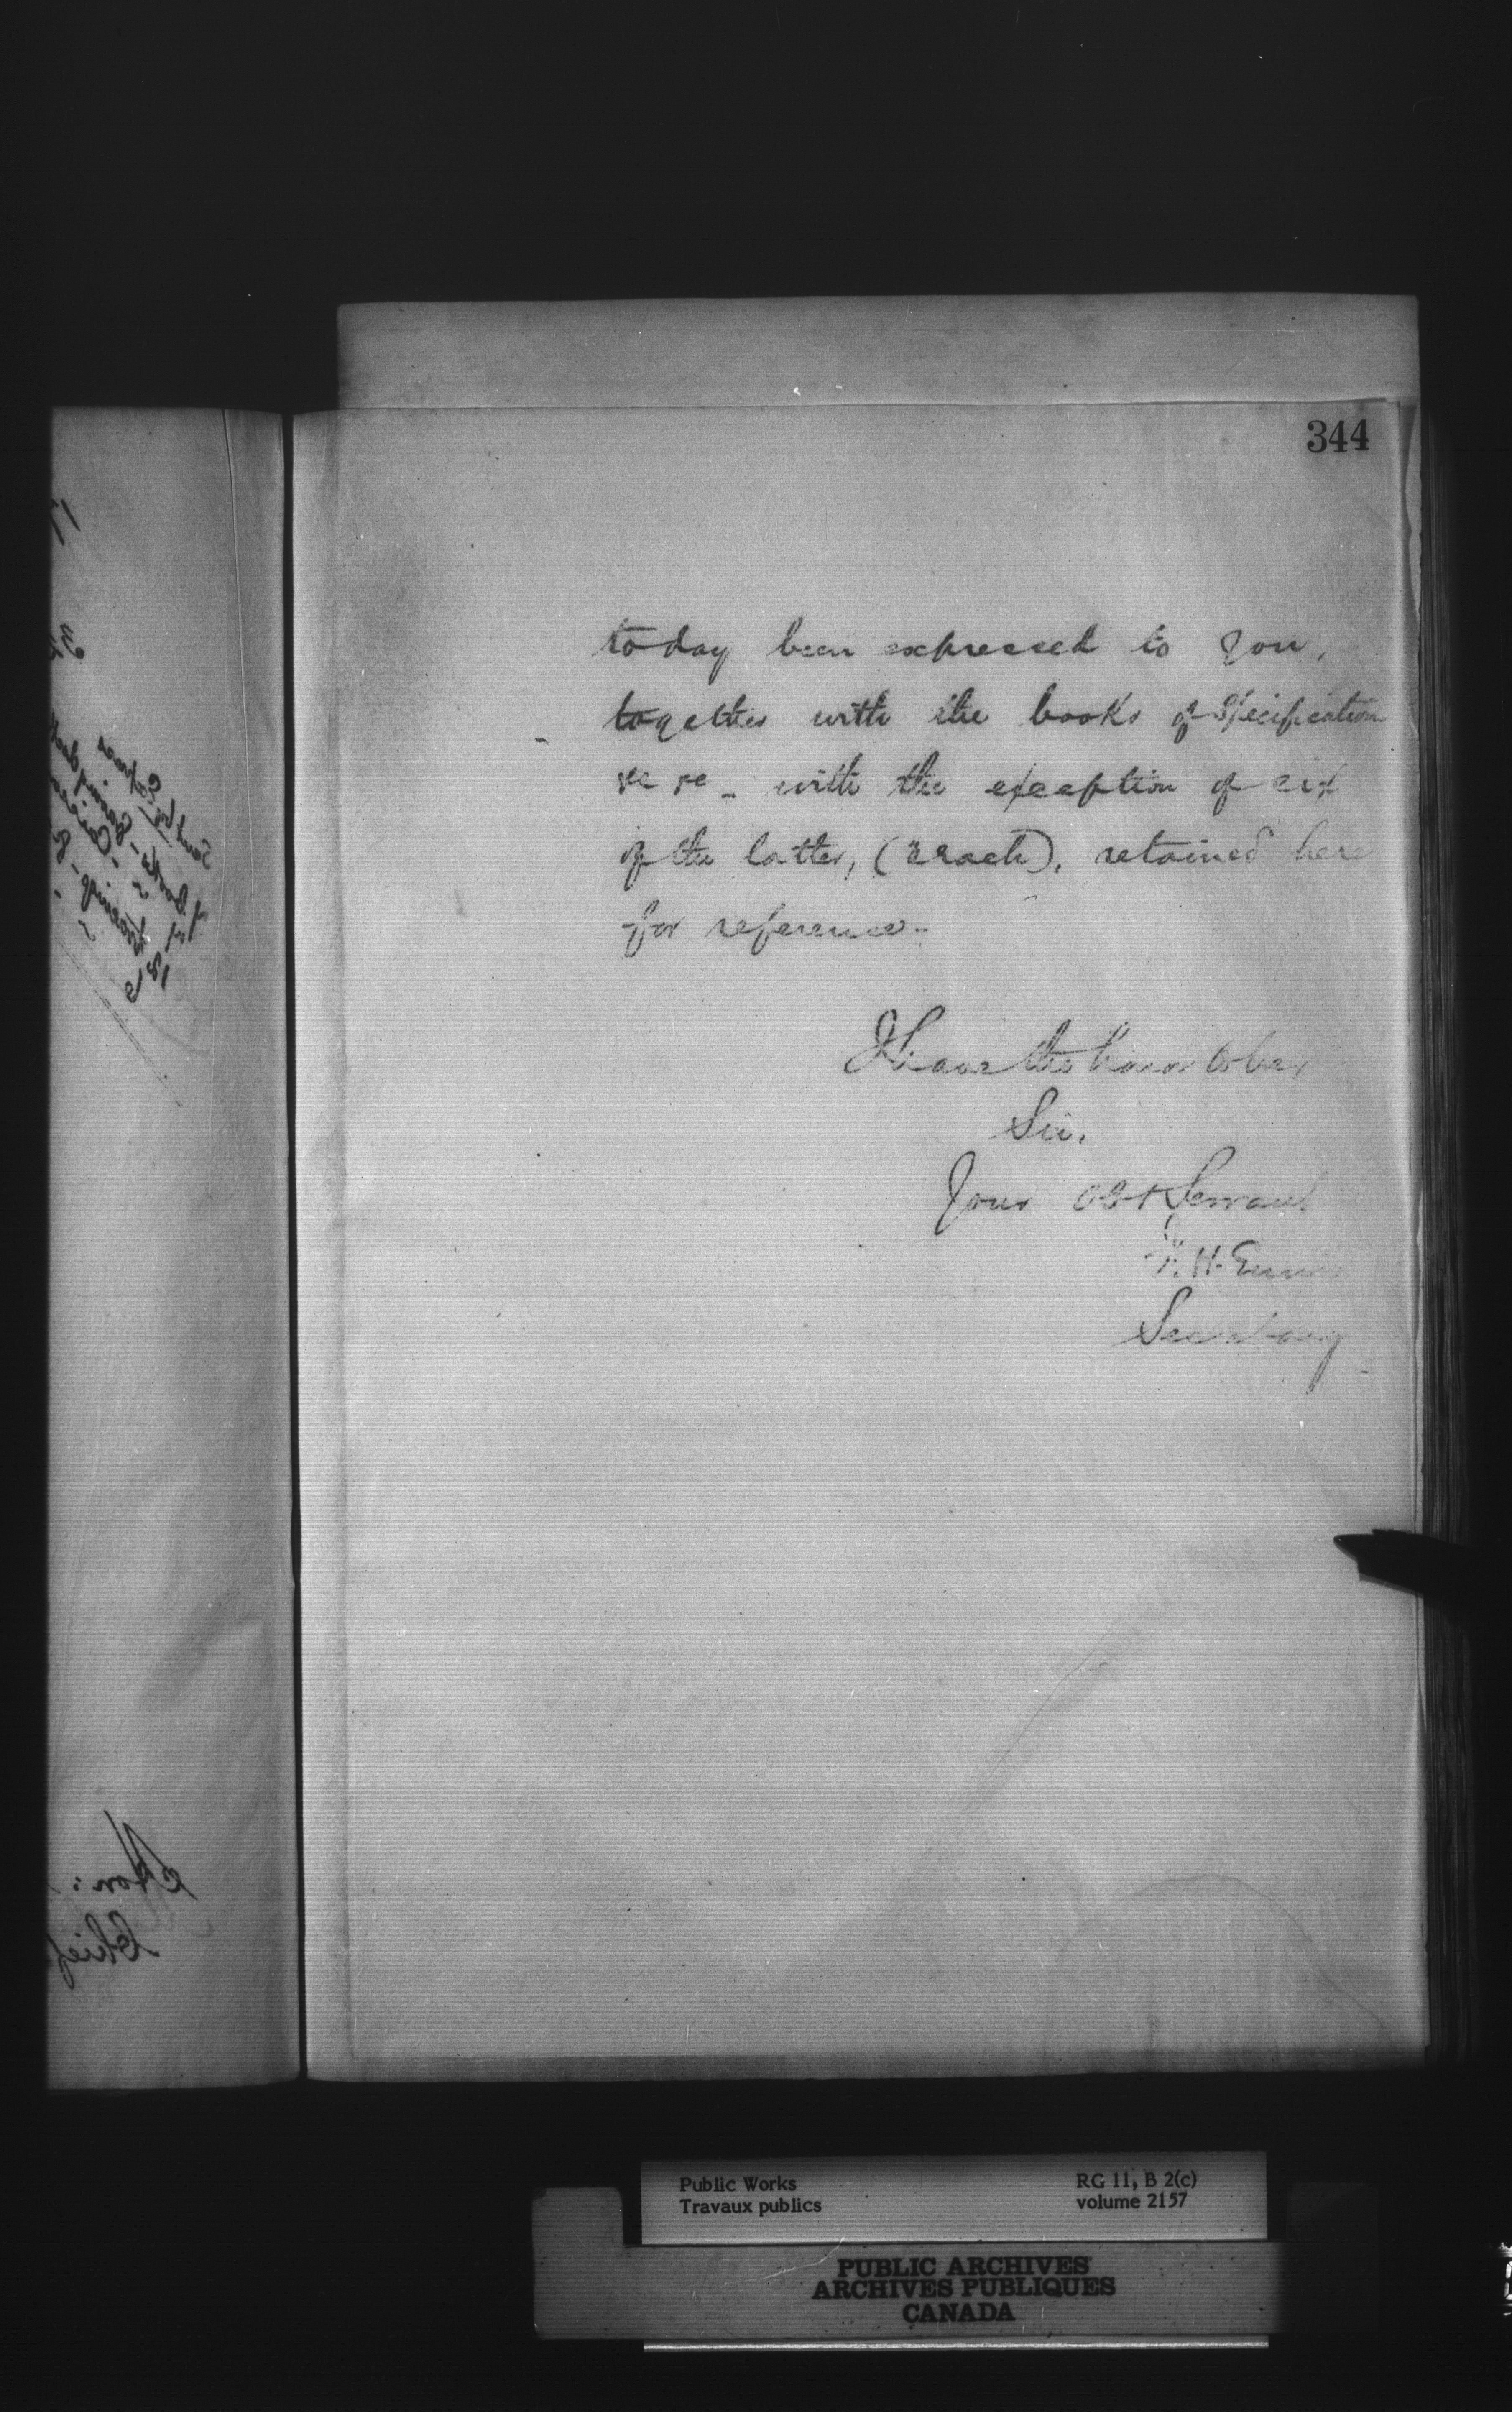 344
today been expressed to you,
together with the books of Specification
&c &c - with the exception of six
of the latter, (2 each), retained here
for reference.
I have the honor to be,
Sir,
Your Obt Servant
F. H. Ennis
Secretary
Hon:
Chief
Public Works
Travaux publics
RG 11, B 2(c)
volume 2157
PUBLIC ARCHIVES
ARCHIVES PUBLIQUES
CANADA